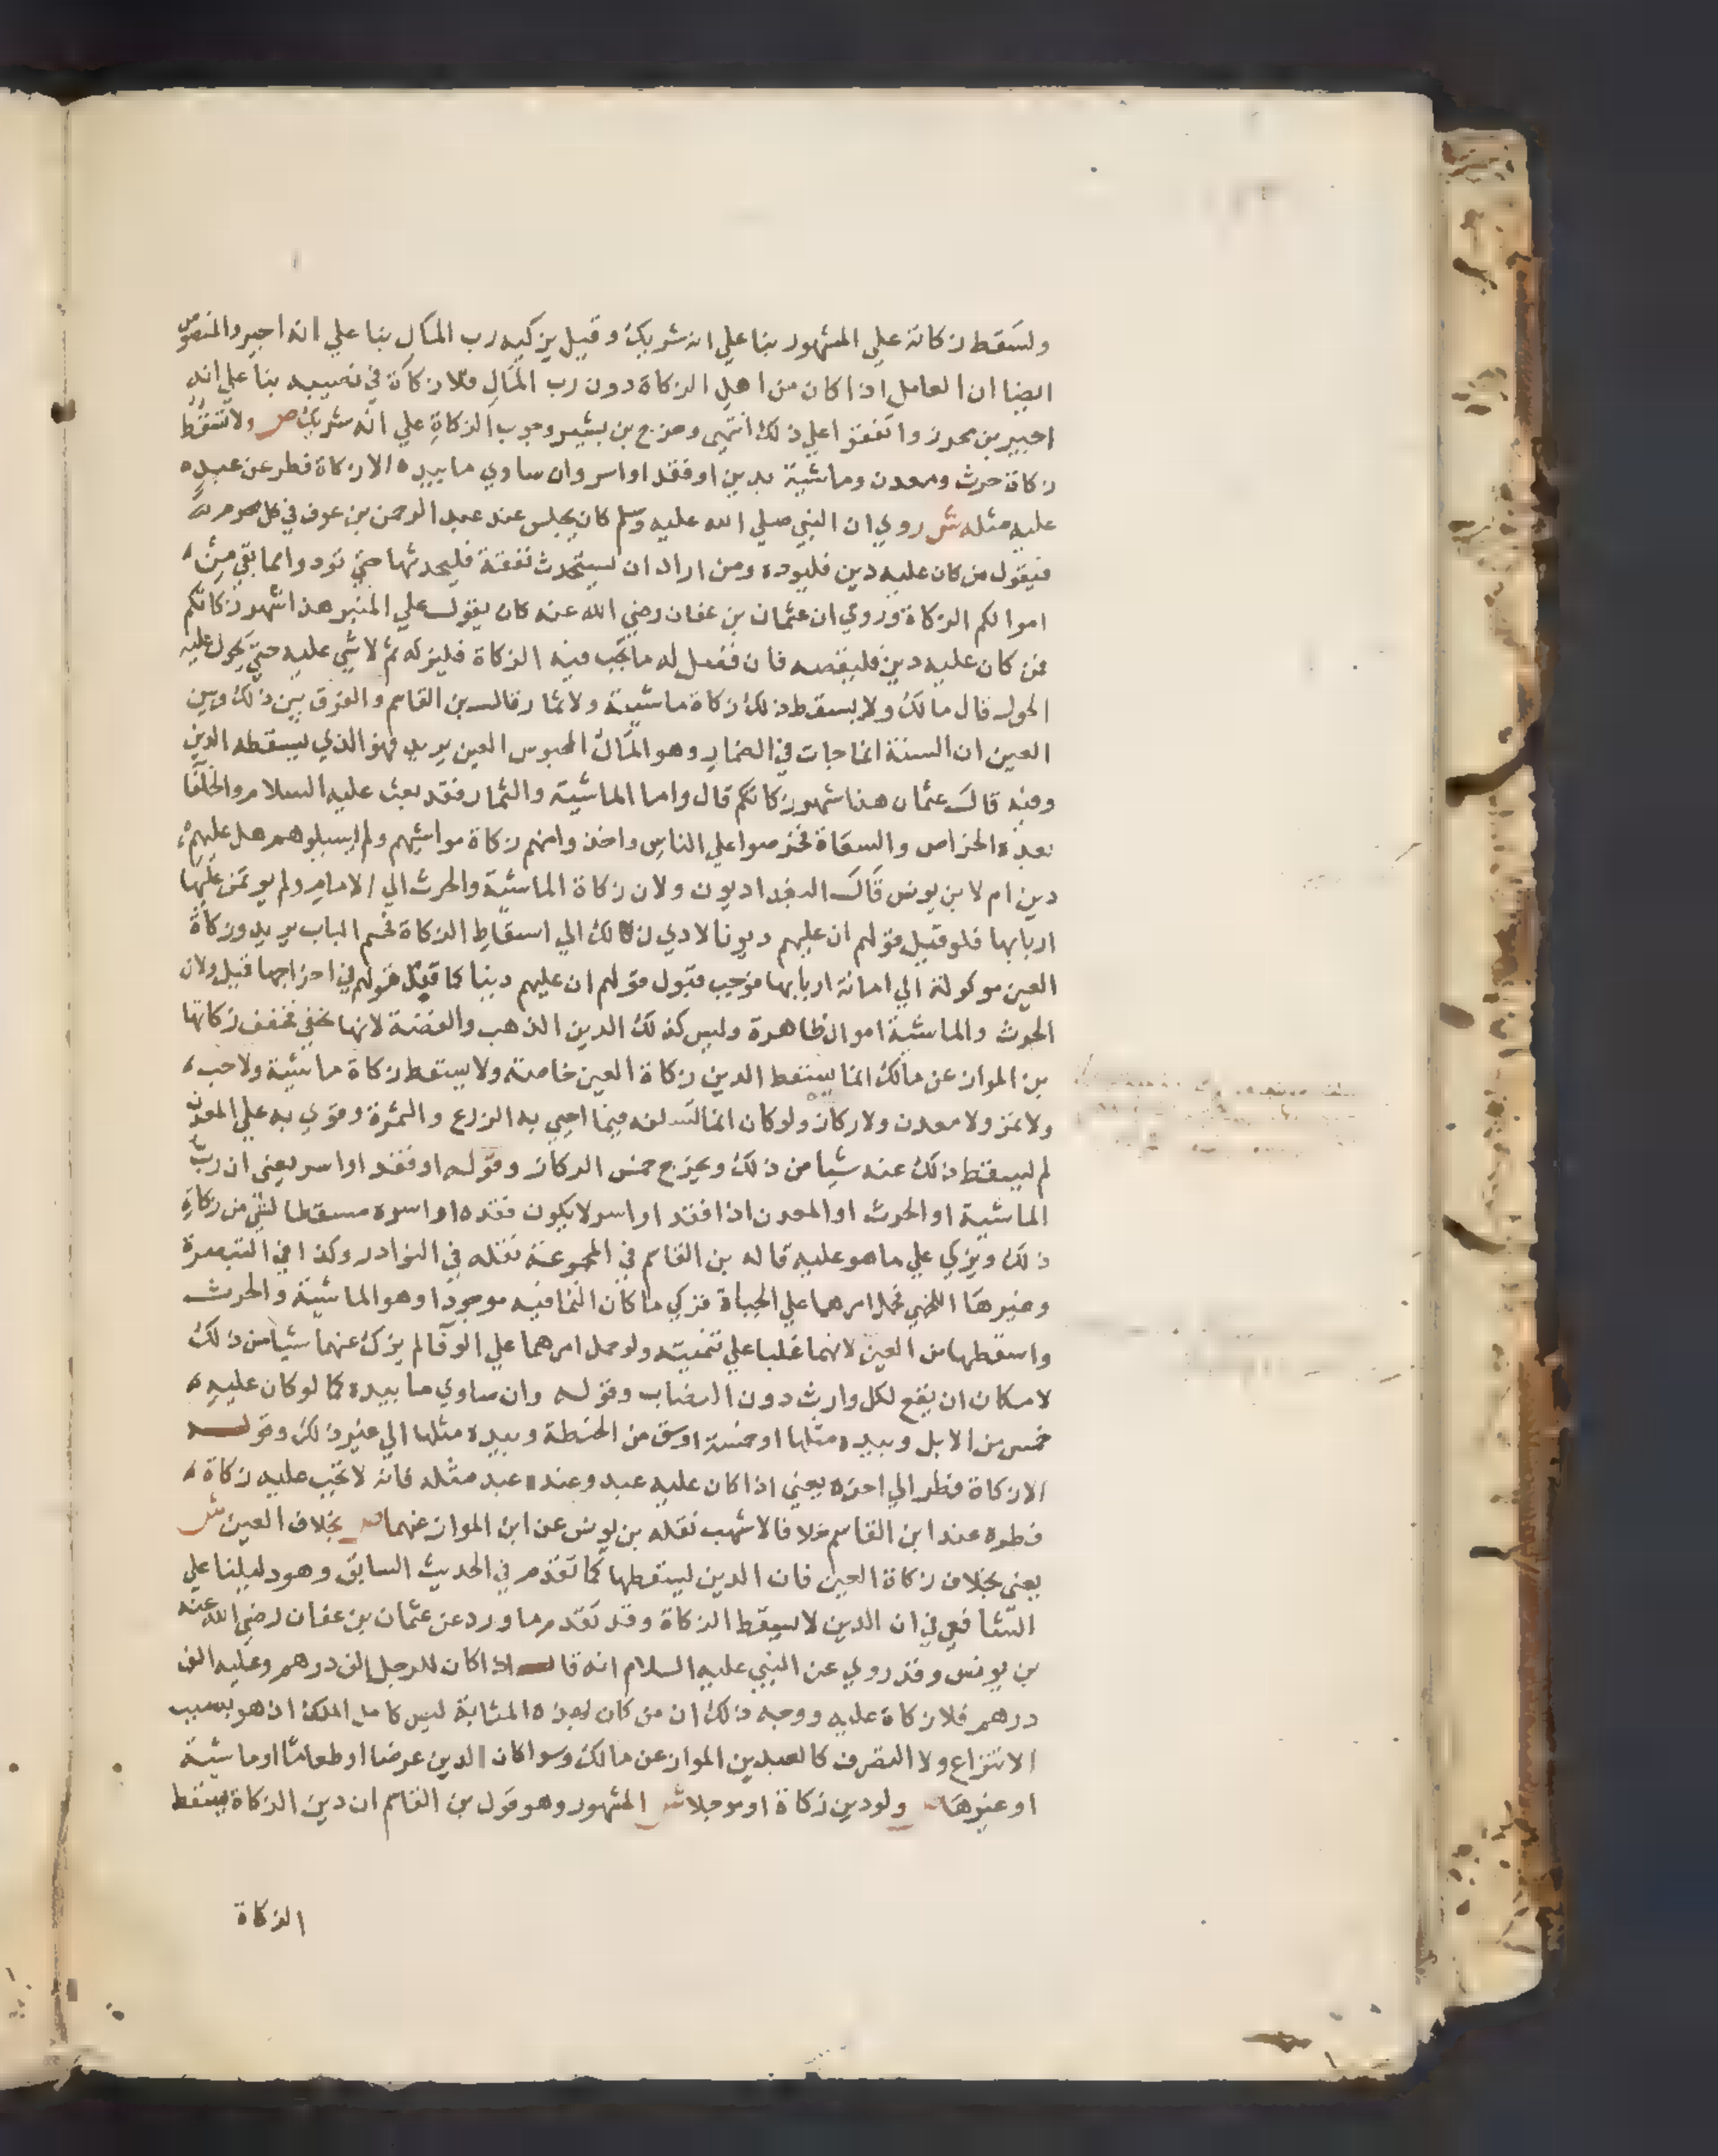 وتسقط زكاته علي المشهور بنا علي انه شريك وقيل يزكيه رب المال بنا علي انه اجير والمنصوص
ايضا ان العامل اذا كان من اهل الزكاة دون رب المال فلا زكاة في نصيبه بنا علي انه
اجير بن محرز واتفقوا علي ذلك انتهي وخرج بن بشير وجوب الزكاة علي انه شريك ص ولا تسقط
زكاة حرث ومعدن وماشية بدين او فقد او اسر وان ساوي ما بيده الا زكاة فطر عن عبد
عليه مثله ش روي ان النبي صلي الله عليه وسلم كان يجلس عند عبد الرحمن بن عوف في كل محرم
فيقول من كان عليه دين فليوده ومن اراد ان يستحدث نفقة فليحدثها حتي تودوا مما بقي من
اموالكم الزكاة وروي ان عثمان بن عفان رضي الله عنه كان يقول علي المنبر هذا شهر زكاتكم
فمن كان عليه دين فليقضه فان فضل له ما تجب فيه الزكاة فليزكه ثم لا شي عليه حتي يحول عليه
الحول قال مالك ولا يسقط ذلك زكاة ماشية ولا ثمار قال بن القاسم والفرق بين ذلك وبين
العين ان السنة انما جات في الضمار وهو المال المحبوس العين يريد فهو الذي يسقطه الدين
وفيه قال عثمان هذا شهر زكاتكم قال واما الماشية والثمار فقد بعث عليه السلام والخلفا
بعده الخراص والسعاة فخرصوا علي الناس واخذوا منهم زكاة مواشيهم ولم يسيلوهم هل عليهم
دين ام لا بن يونس قال البغداديون ولان زكاة الماشية والحرث الي الامام ولم يوتمن عليها
اربابها فلو قبل قولهم ان عليهم ديونا لادي ذلك الي اسقاط الزكاة فحسم الباب يريد وزكاة
العين موكولة الي امانة اربابها فوجب قبول قولهم ان عليهم دينا كما قبل قولهم في اخراجها قيل ولان
الحرث والماشية اموال ظاهرة وليس كذلك الدين الذهب والفضة لانها تخفي فخفف زكاتها
بن المواز عن مالك انما يسقط الدين زكاة العين خاصة ولا يسقط زكاة ماشية ولا حب
ولا تمر ولا معدن ولا ركاز ولو كان انما تسلفه فيما احيي به الزرع والثمرة وقوي به علي المعدن
لم يسقط ذلك عنه شيا من ذلك ويخرج خمس الركاز وقوله او فقد او اسر يعني ان رب
الماشية او الحرث او المعدن اذا فقد او اسر لا يكون فقده او اسره مسقطا لشي من زكاة
ذلك ويزكي علي ما هو عليه قاله بن القاسم في المجموعة نقله في النوادر وكذا في التبصرة
وغيرها اللخمي فحمل امرهما علي الحياة فزكي ما كان النما فيه موجودا وهو الماشية والحرث
واسقطها من العين لانهما غلبا علي تنميته ولو حمل امرهما علي الوفا لم يزك عنهما شيا من ذلك
لامكان ان يقع لكل وارث دون النصاب وقوله وان ساوي ما بيده كما لو كان عليه
خمس من الابل وبيده مثلها او خمسة اوسق من الحنطة وبيده مثلها الي غير ذلك وقوله
الا زكاة فطر الي اخره يعني اذا كان عليه عبد وعنده عبد مثله فانه لا تجب عليه زكاة
فطره عند ابن القاسم خلافا لاشهب نقله بن يونس عن ابن المواز عنهما ص بخلاف العين ش
يعني بخلاف زكاة العين فان الدين يسقطها كما تقدم في الحديث السابق وهو دليلنا علي
الشافعي في ان الدين لا يسقط الزكاة وقد تقدم ما ورد عن عثمان بن عفان رضي الله عنه
بن يونس وقد روي عن النبي عليه السلام انه قال اذا كان للرجل الف درهم وعليه الف
درهم فلا زكاة عليه ووجه ذلك ان من كان بهذه المثابة ليس كامل الملك اذ هو بسبب
الانتزاع ولا التصرف كالعبد بن المواز عن مالك وسوا كان الدين عرضا او طعاما او ماشية
او غيرها ص ولو دين زكاة او موجلا ش المشهور وهو قول بن القاسم ان دين الزكاة يسقط
الزكاة